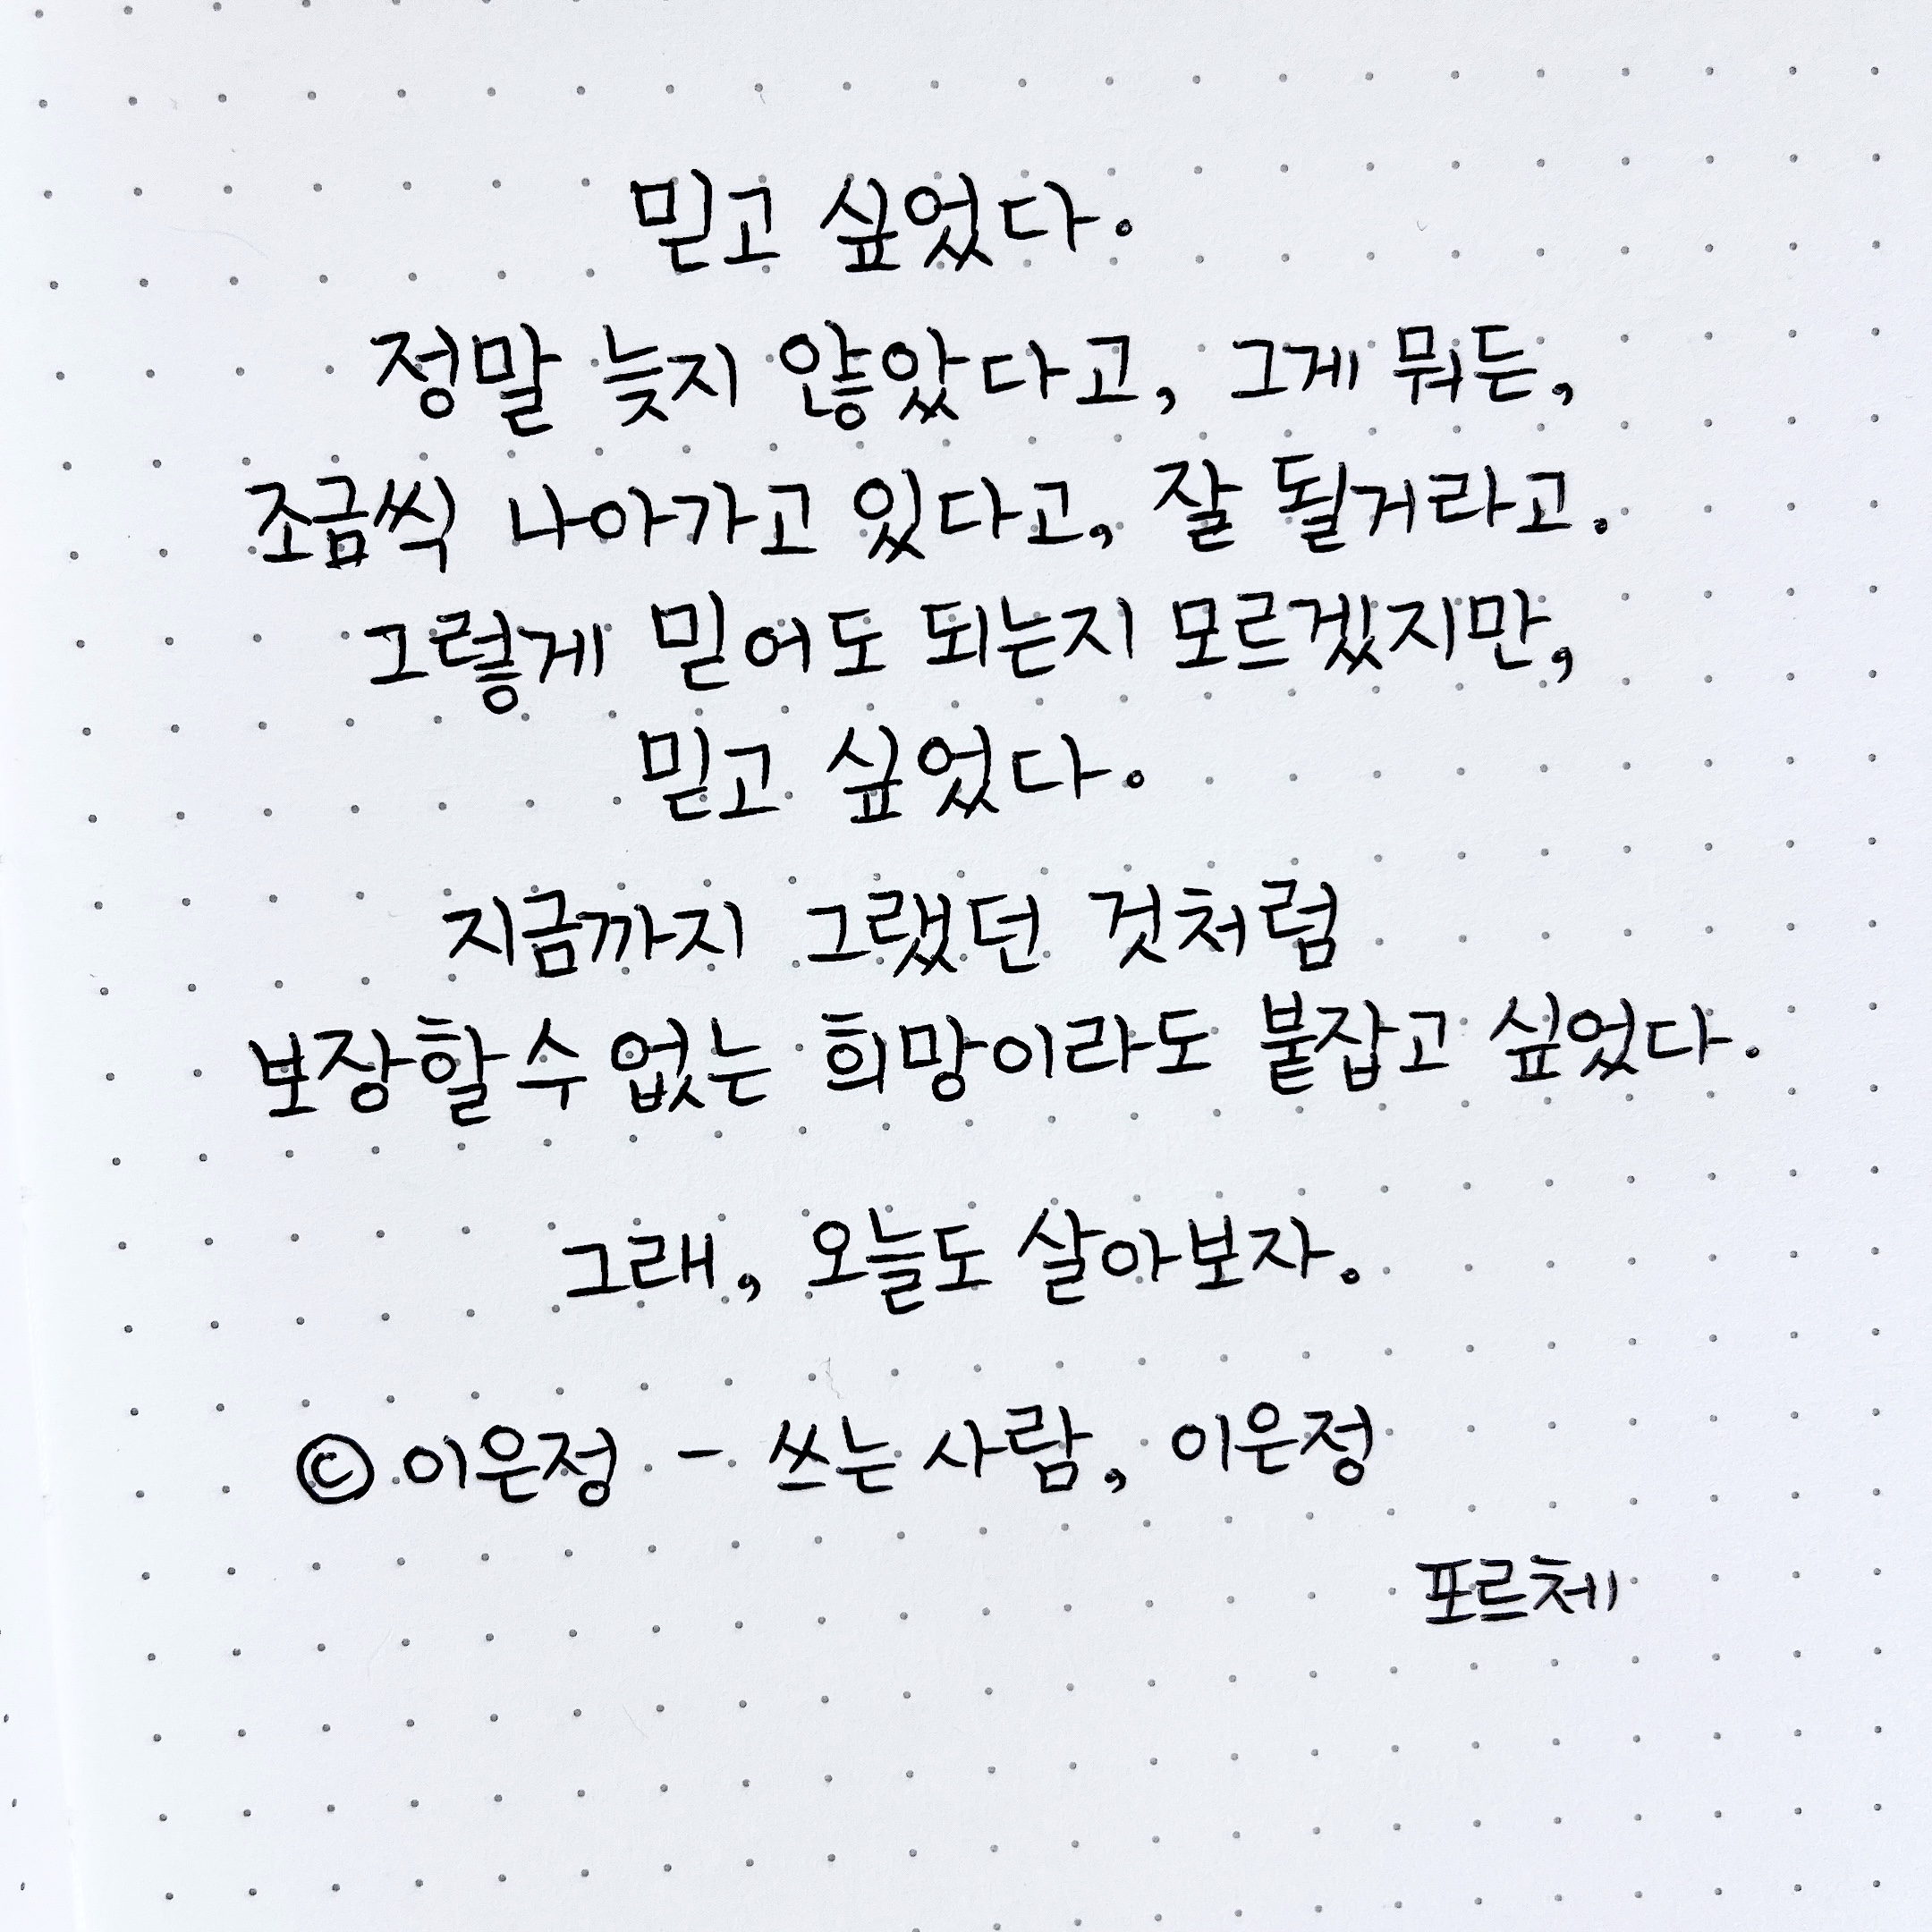 믿고 싶었다.
정말 늦지 않았다고, 그게 뭐든,
조금씩 나아가고 있다고, 잘 될거라고.
그렇게 믿어도 되는지 모르겠지만,
믿고 싶었다.
지금까지 그랬던 것처럼
보장할 수 없는 희망이라도 붙잡고 싶었다.
그래, 오늘도 살아보자.
© 이은정 - 쓰는 사람, 이은정
포르체